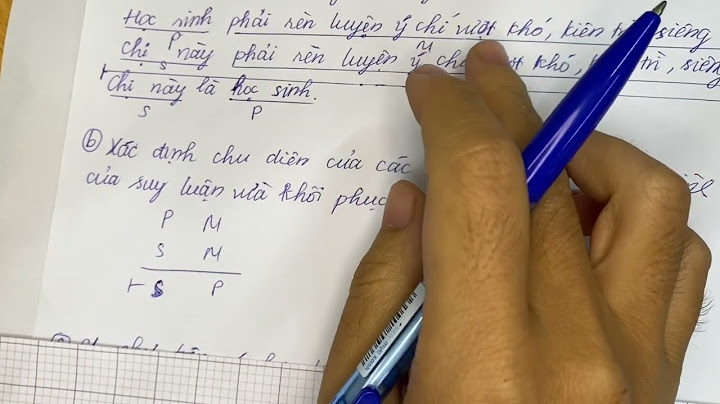 Học sinh phải rèn luyện ý chí vượt khó, kiên trì, siêng
P M
Chị này phải rèn luyện ý khó, trì, siêng
S
⊢ Chị này là học sinh.
S P
b) Xác định chu diên của các
của suy luận vừa khôi phục
P M
S M
⊢ S P